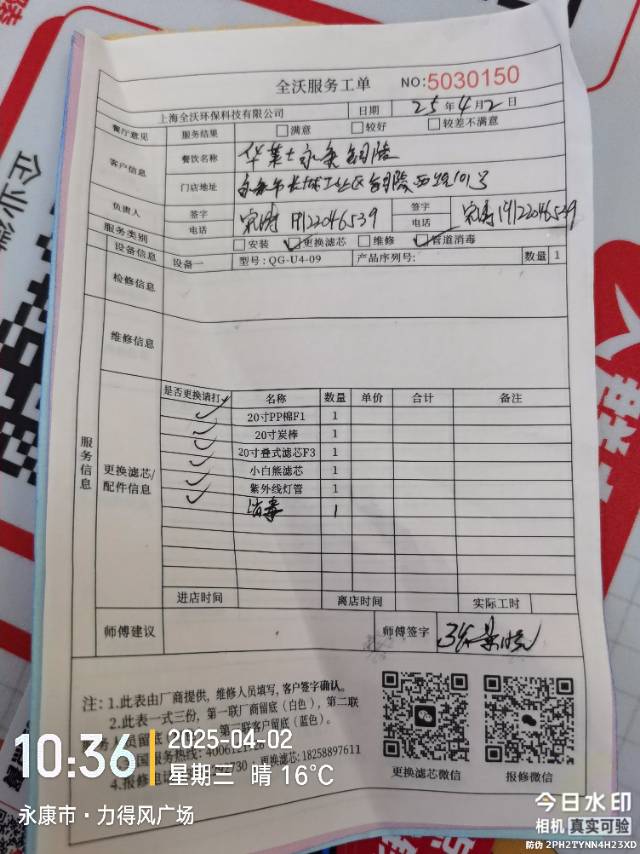 全沃服务工单 NO:5030150
上海全沃环保科技有限公司 日期 25年4月2日
餐厅意见 服务结果 □满意 □较好 □较差不满意
客户信息 餐饮名称 华莱士永康
门店地址 永康市长城工业区
负责人 签字 签字
服务类别 电话 19122046539 电话 19122046539
□安装 ☑更换滤芯 □维修 ☑管道消毒
设备信息 设备一 型号:QG-U4-09 产品序列号: 数量 1
检修信息
维修信息
服务信息
更换滤芯/配件信息
是否更换请打✓ 名称 数量 单价 合计 备注
✓ 20寸PP棉F1 1
✓ 20寸炭棒 1
✓ 20寸叠式滤芯F3 1
✓ 小白熊滤芯 1
✓ 紫外线灯管 1
消毒 1
进店时间 离店时间 实际工时
师傅建议 师傅签字
注: 1.此表由厂商提供, 维修人员填写, 客户签字确认。
2.此表一式三份, 第一联厂商留底(白色), 第二联
员留底 联客户留底(蓝色)。
国服务热线: 400612
4.报修电话 730 更换滤芯:18258897611
更换滤芯微信 报修微信
10:36 2025-04-02
星期三 晴 16℃
永康市·力得风广场
今日水印
相机 真实可验
防伪 2PH2TYNN4H23XD